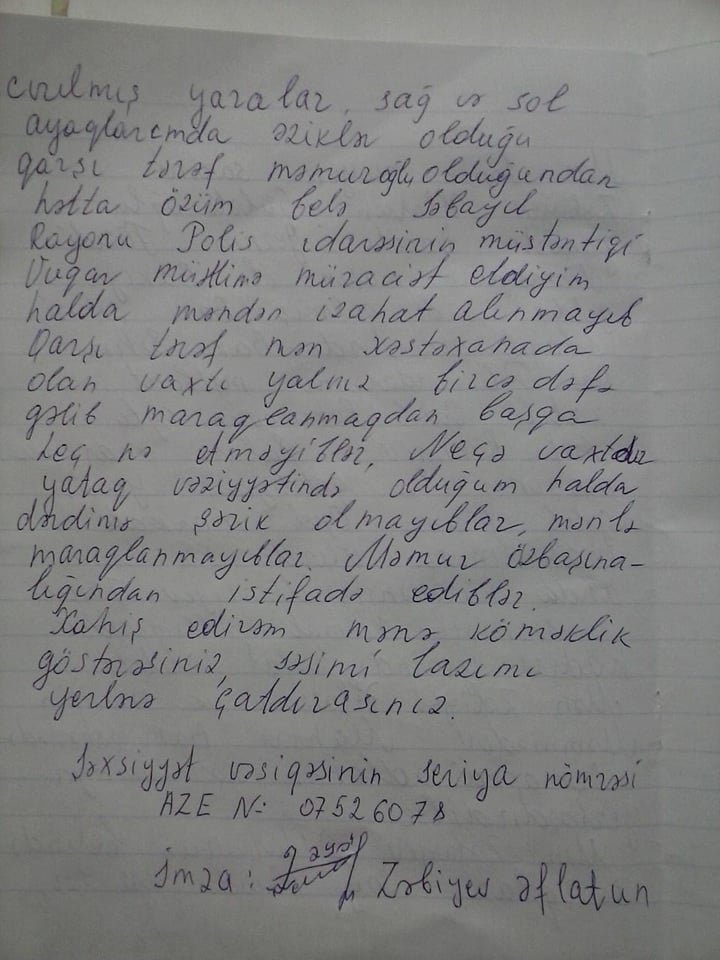 cızılmış yaralar, sağ və sol
ayaqlarımda əziklər olduğu
qarşı tərəf məmuroğlu olduğundan
hətta özüm belə Səbayıl
Rayonu Polis idarəsinin müstəntiqi
Vuqar müəllimə müraciət etdiyim
halda məndən izahat alınmayıb
Qarşı tərəf mən xəstəxanada
olan vaxtı yalnız bircə dəfə
gəlib maraqlanmaqdan başqa
heç nə etməyiblər, Neçə vaxtdır
yataq vəziyyətində olduğum halda
dərdimə şərik olmayıblar, mənlə
maraqlanmayıblar. Məmur özbaşına-
lığından istifadə ediblər.
Xahiş edirəm mənə köməklik
göstərəsiniz, səsimi lazımı
yerlərə çatdırasınız.
Şəxsiyyət vəsiqəsinin seriya nömrəsi
AZE N: 07526078
İmza: Zəbiyev Əflatun